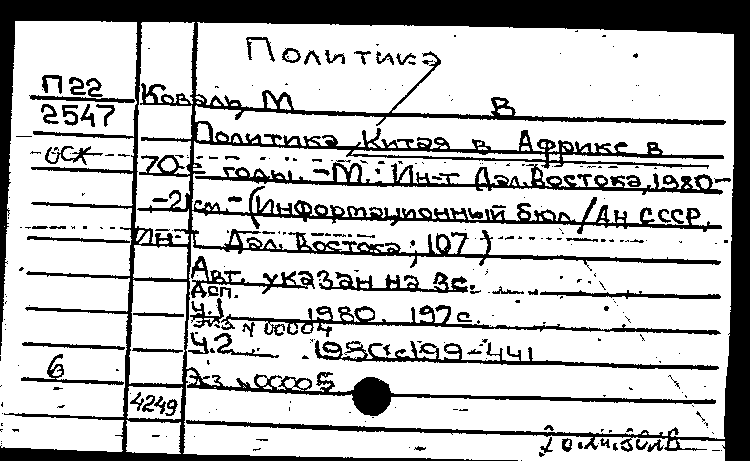 Политика
П22
2547
ОСК
Коваль, М В
Политика Китая в Африке в
70-е годы. - М.: Ин-т Дал. Востока, 1980-
- 21см. - (Информационный бюл./Ан СССР,
Ин-т Дал. Востока; 107)
Авт. указан на 3с.
ДСП.
Ч.1. 1980. 197с.
Экз N 00004
Ч.2 1980. с199-441
Экз N00005
6
4249